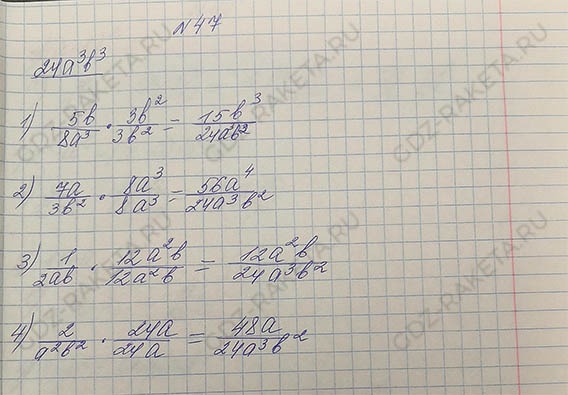 № 47
24a³b³
1) 5b/8a³ · 3b²/3b² = 15b³/24ab²
2) 7a/3b² · 8a³/8a³ = 56a⁴/24a³b²
3) 1/2ab · 12a²b/12a²b = 12a²b/24a³b²
4) 2/a²b² · 24a/24a = 48a/24a³b²
GDZ-RAKETA.RU